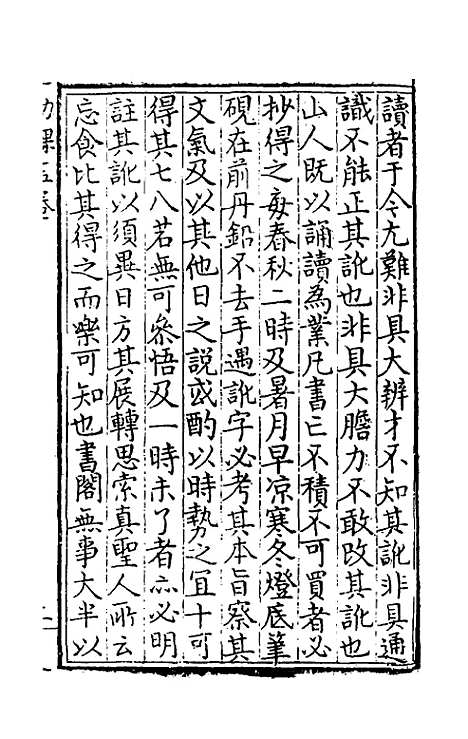 讀者于今尢難非具大辨才不知其訛非具通
識不能正其訛也非具大膽力不敢改其訛也
山人既以誦讀為業凡書亡不積不可買者必
抄得之每春秋二時及暑月早凉寒冬燈底筆
硯在前丹鉛不去手遇訛字必考其本旨察其
文氣及以其他日之説或酌以時勢之宜十可
得其七八若無可叅悟及一時未了者亦必明
註其訛以須異日方其展轉思索真聖人所云
忘食比其得之而樂可知也書閣無事大半以